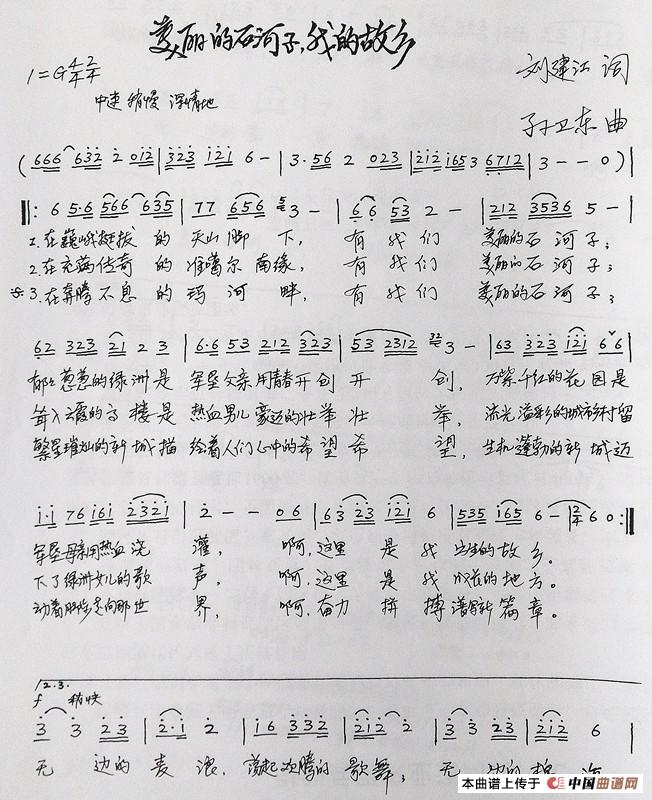 美丽的石河子，我的故乡
1=G 4/4 2/4
刘建江 词
中速 稍慢 深情地
孙卫东 曲
(666 632 2 012|323 121 6-|3·56 2 023|212 1653 6712|3--0)|
‖: 6 5·6 566 635|77 656 3-|66 53 2-|212 3536 5-|
1.在巍峨挺拔 的 天山脚 下， 有 我们 美丽的石 河子；
2.在充满传奇 的 准噶尔 南缘， 有 我们 美丽的石 河子；
3.在奔腾不息 的 玛河 畔， 有 我们 美丽的石 河子；
62 323 21 2 3|6·6 53 212 323|53 2312 3-|63 323 121 66|
郁郁葱葱的绿洲是 军垦父亲用青春开创 开 创，万紫千红的花园是
耸入云霞的高楼是 热血男儿豪迈的壮举 壮 举，流光溢彩的城市乡村留
繁星璀灿的新城描 绘着人们心中的希望 希 望，生机蓬勃的新城迈
1·1 76 161 2321|2--06|63 23 121 6|535 165 6-|2/4 6 0:‖
军垦母亲用热血浇 灌， 啊，这里 是 我 的故 乡。
下了绿洲女儿的歌 声， 啊，这里 是 我 的地 方。
动着脚步走向那世 界， 啊，奋力 拼 搏 谱写新 篇 章。
2.3.
f 稍快
3 3 23|2·1 2|16 332|212 2|3 3 23|212 6|
无 边的 麦 浪， 荡起欢腾的 歌舞； 无 边的
本曲谱上传于 中国曲谱网